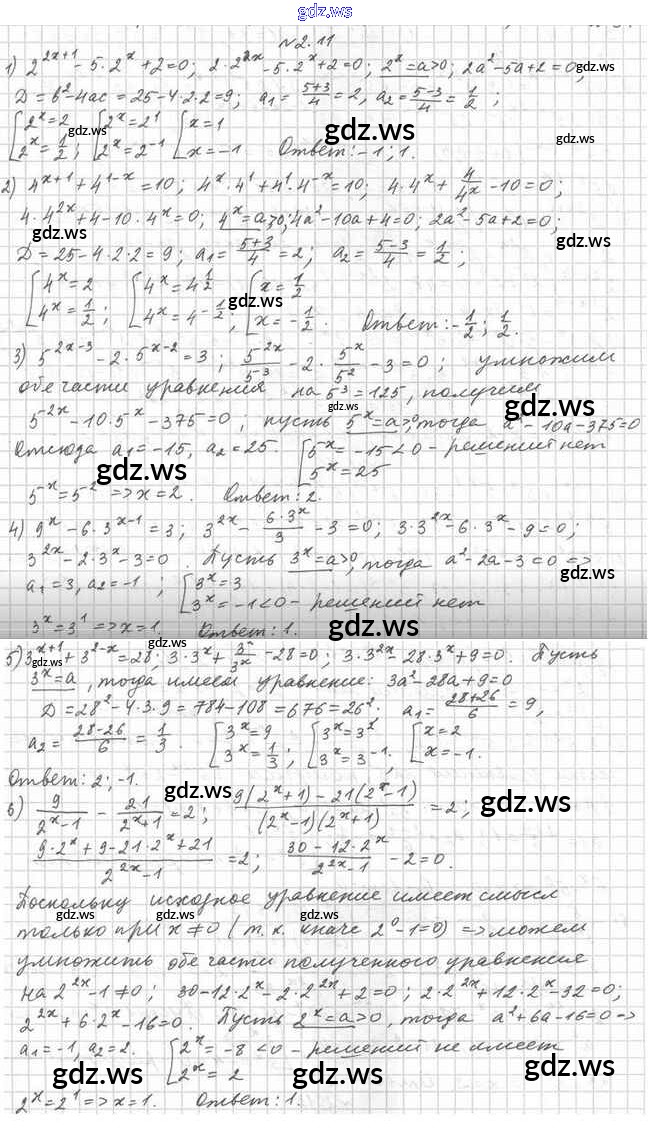 gdz.ws
№2.11
1) 2^{2x+1} - 5·2^x + 2 = 0; 2·2^{2x} - 5·2^x + 2 = 0; 2^x = a > 0; 2a² - 5a + 2 = 0; gdz.ws
D = b² - 4ac = 25 - 4·2·2 = 9; a₁ = (5+3)/4 = 2, a₂ = (5-3)/4 = 1/2;
[2^x = 2 [2^x = 2^1 [x = 1 gdz.ws gdz.ws
2^x = 1/2; 2^x = 2^{-1} x = -1 Ответ: -1; 1. gdz.ws
2) 4^{x+1} + 4^{1-x} = 10; 4^x·4^1 + 4^1·4^{-x} = 10; 4·4^x + 4/4^x - 10 = 0;
4·4^{2x} + 4 - 10·4^x = 0; 4^x = a > 0; 4a² - 10a + 4 = 0; 2a² - 5a + 2 = 0;
gdz.ws gdz.ws
D = 25 - 4·2·2 = 9; a₁ = (5+3)/4 = 2; a₂ = (5-3)/4 = 1/2;
[4^x = 2 [4^x = 4^{1/2} [x = 1/2 gdz.ws
4^x = 1/2; 4^x = 4^{-1/2}; x = -1/2. Ответ: -1/2; 1/2.
3) 5^{2x-3} - 2·5^{x-2} = 3; 5^{2x}/5^3 - 2·5^x/5^2 - 3 = 0; умножим
обе части уравнения на 5³ = 125, получим
gdz.ws gdz.ws
5^{2x} - 10·5^x - 375 = 0, пусть 5^x = a > 0, тогда a² - 10a - 375 = 0
Отсюда a₁ = -15, a₂ = 25. [5^x = -15 < 0 - решений нет
gdz.ws 5^x = 25
5^x = 5^2 => x = 2. Ответ: 2. gdz.ws
4) 9^x - 6·3^{x-1} = 3; 3^{2x} - 6·3^x/3 - 3 = 0; 3·3^{2x} - 6·3^x - 9 = 0;
3^{2x} - 2·3^x - 3 = 0. Пусть 3^x = a > 0, тогда a² - 2a - 3 = 0 =>
gdz.ws
a₁ = 3, a₂ = -1; [3^x = 3
3^x = -1 < 0 - решений нет
3^x = 3^1 => x = 1. Ответ: 1. gdz.ws
gdz.ws gdz.ws
5) 3^{x+1} + 3^{2-x} = 28; 3·3^x + 3^2/3^x - 28 = 0; 3·3^{2x} - 28·3^x + 9 = 0. Пусть
3^x = a, тогда имеем уравнение: 3a² - 28a + 9 = 0
D = 28² - 4·3·9 = 784 - 108 = 676 = 26²; a₁ = (28+26)/6 = 9,
a₂ = (28-26)/6 = 1/3. [3^x = 9 [3^x = 3^2 [x = 2
3^x = 1/3; 3^x = 3^{-1}; x = -1.
Ответ: 2; -1. gdz.ws gdz.ws
6) 9/(2^x-1) - 21/(2^x+1) = 2; (9(2^x+1) - 21(2^x-1))/((2^x-1)(2^x+1)) = 2;
(9·2^x + 9 - 21·2^x + 21)/(2^{2x}-1) = 2; (30 - 12·2^x)/(2^{2x}-1) - 2 = 0.
Поскольку исходное уравнение имеет смысл
gdz.ws gdz.ws gdz.ws gdz.ws
только при x ≠ 0 (т.к. иначе 2^0 - 1 = 0) => можем
умножить обе части полученного уравнения
на 2^{2x} - 1 ≠ 0; 30 - 12·2^x - 2·2^{2x} + 2 = 0; 2·2^{2x} + 12·2^x - 32 = 0;
2^{2x} + 6·2^x - 16 = 0. Пусть 2^x = a > 0, тогда a² + 6a - 16 = 0 =>
a₁ = -1, a₂ = 2. [2^x = -8 < 0 - решений не имеет
gdz.ws gdz.ws gdz.ws
2^x = 2
2^x = 2^1 => x = 1. Ответ: 1.